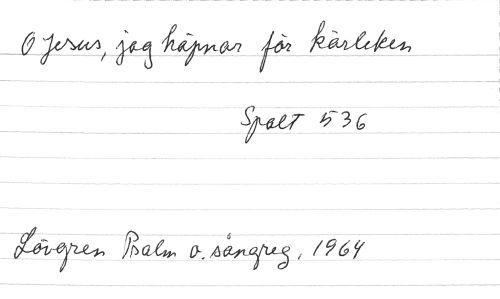 O Jesus, jag häpnar för kärleken
Spalt 536
Lövgren Psalm o. sångreg, 1964